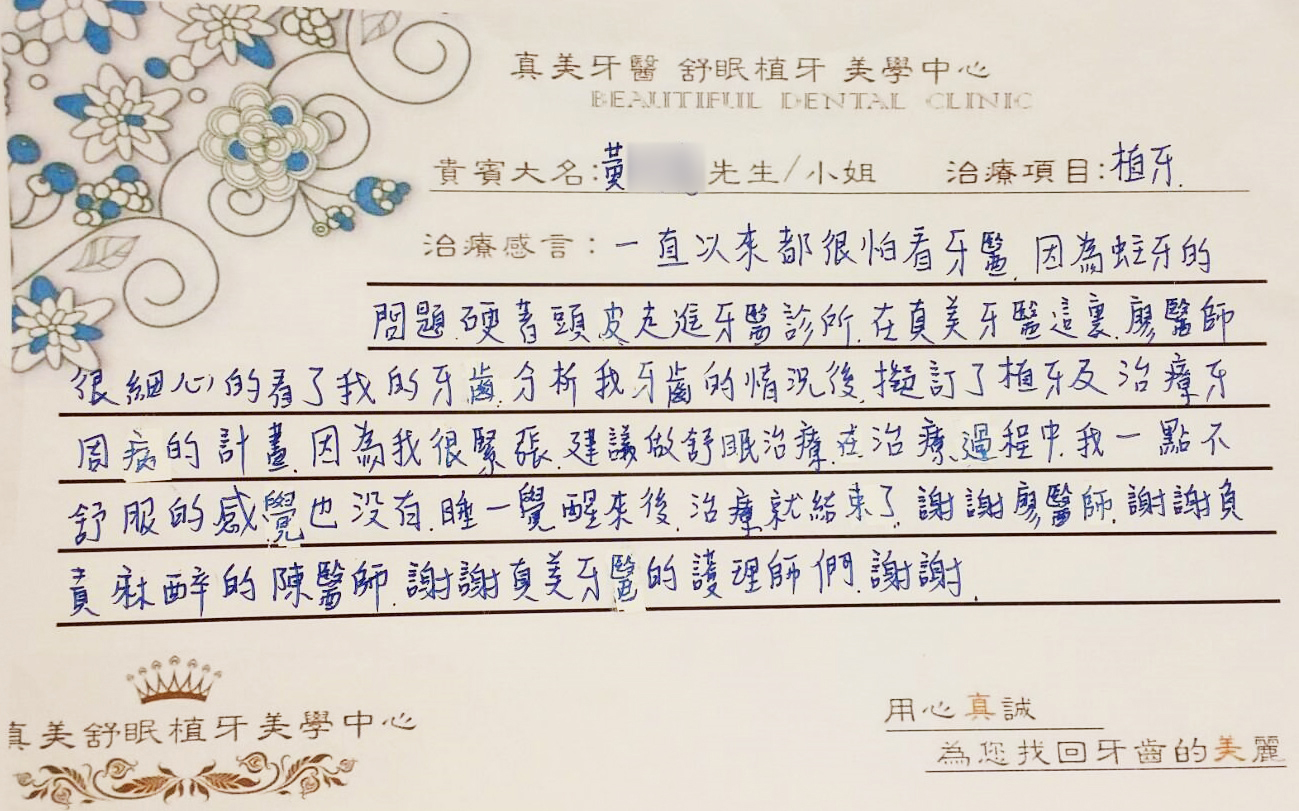 真美牙醫 舒眠植牙 美學中心
BEAUTIFUL DENTAL CLINIC
貴賓大名:黃 先生/小姐 治療項目:植牙.
治療感言：一直以來都很怕看牙醫.因為蛀牙的
問題.硬著頭皮走進牙醫診所.在真美牙醫這裏.廖醫師
很細心的看了我的牙齒.分析我牙齒的情況後.擬訂了植牙及治療牙
周病的計畫.因為我很緊張.建議做舒眠治療.在治療過程中.我一點不
舒服的感覺也沒有.睡一覺醒來後.治療就結束了.謝謝廖醫師.謝謝負
責麻醉的陳醫師.謝謝真美牙醫的護理師們.謝謝.
真美舒眠植牙美學中心
用心真誠
為您找回牙齒的美麗